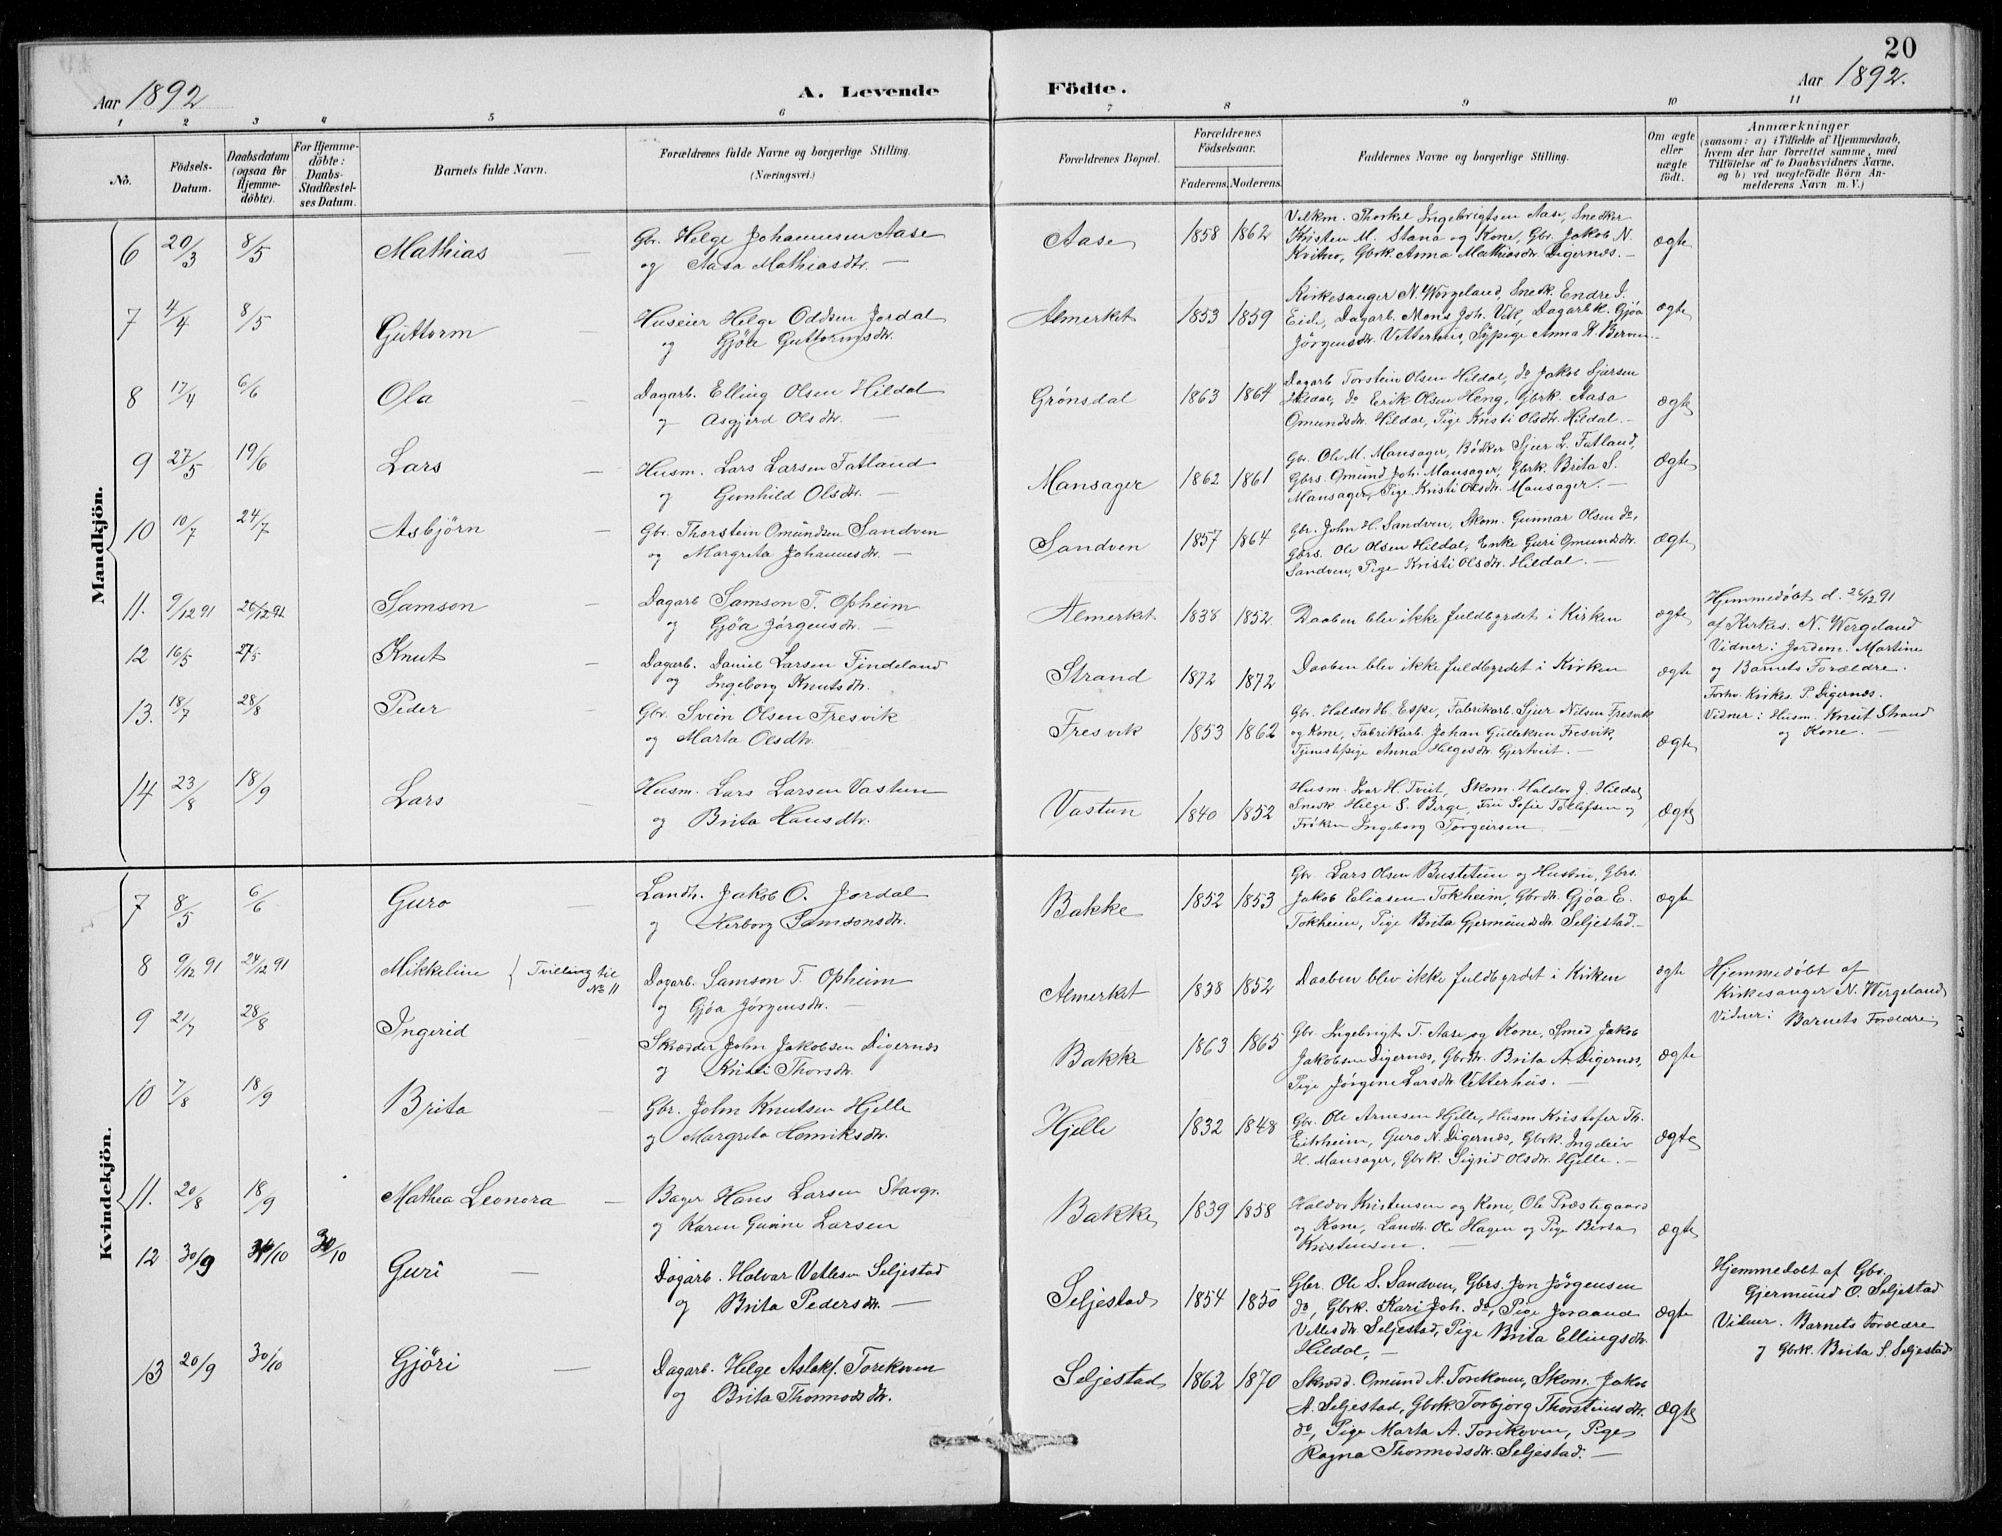 20
Aar 1892
A. Levende Födte.
Aar 1892.
1 2 3 4 5 6 7 8 9 10 11
No.
Födsels-Datum.
Daabsdatum (ogsaa for Hjemmedöbte).
For Hjemmedöbte: Daabs-Stadfæstelses Datum.
Barnets fulde Navn.
Forældrenes fulde Navne og borgerlige Stilling.
(Næringsvei.)
Forældrenes Bopæl.
Forældrenes Födselsaar.
Faderens. Moderens.
Faddernes Navne og borgerlige Stilling.
Om ægte eller uægte födt.
Anmærkninger
(saasom: a) i Tilfælde af Hjemmedaab, hvem der har forrettet samme, med Tilföielse af to Daabsvidners Navne, og b) ved uægtefödte Börn Anmelderens Navn m. V.)
Mandkjön.
6 20/3 8/5 Mathias — Gbr. Helge Johannesen Aase
og Aasa Mathiasdtr. —
Aase 1858 1862
Velkm. Thorkel Ingebrigtsen Aase, Snedker
Kristen M. Stana og Kone, Gbr. Jakob N.
Kvitno, Gbrk. Anna Mathiasdtr. Digernæs. —
ægte
7 4/4 8/5 Guttorm — Huseier Helge Oddsen Jordal
og Gjöle Guttormsdtr.
Almerket 1853 1859
Kirkesanger N. Wergeland, Snedk. Endre J.
Eide, Dagarb. Mons Joh. Vik, Dagarbk. Gjöa
Jörgensdtr. Vetterhus, Sypige Anna K. Berven.
ægte
8 17/4 6/6 Ola — Dagarb. Elling Olsen Hildal
og Asgjerd Olsdtr. —
Grönsdal 1863 1864
Dagarb Torstein Olsen Hildal, do Jakob Sjursen
Hildal, do Erik Olsen Heng, Gbrk. Aasa
Omundsdtr. Hildal, Pige Kristi Olsdtr. Hildal. —
ægte
9 27/5 19/6 Lars — Husm. Lars Larsen Tatland
og Gunhild Olsdtr. —
Mansager 1862 1861
Gbr. Ole M. Mansager, Bödker Sjur L. Tatland,
Gbrs. Omund Joh. Mansager, Gbrk. Brita S.
Mansager, Pige Kristi Olsdtr. Mansager. —
ægte
10 10/7 24/7 Asbjörn — Gbr. Thorstein Omundsen Sandven
og Margreta Johannesdtr. —
Sandven 1857 1864
Gbr. John H. Sandven, Skom. Gunnar Olsen do,
Gbrs. Ole Olsen Hildal, Enke Guri Omundsdtr.
Sandven, Pige Kristi Olsdtr. Hildal. —
ægte
11. 9/12 91 26/12 91 Samson — Dagarb Samson T. Opheim
og Gjöa Jörgensdtr. —
Almerket 1838 1852.
Daaben blev ikke fuldbyrdet i Kirken
ægte
Hjemmedöbt d. 26/12 91
af Kirkes. N. Wergeland
Vidner: Jordem. Martine
og Barnets Forældre.
12 16/5 27/5 Knut — Dagarb. Daniel Larsen Findeland
og Ingeborg Knutsdtr.
Strand 1872 1872
Daaben blev ikke fuldbyrdet i Kirken
ægte
Forhv. Kirkes. P. Digernæs.
Vidner: Husm. Knut Strand
og Kone. —
13. 18/7 28/8 Peder — Gbr. Svein Olsen Fresvik
og Marta Olsdtr.
Fresvik 1853 1862
Gbr. Haldor H. Espe, Fabrikarb. Sjur Nilsen Fresvik
og Kone, Fabrikarb. Johan Gulleksen Fresvik,
Tjenestpige Anna Helgesdtr. Gjertveit. —
ægte
14 23/8 18/9 Lars — Husm. Lars Larsen Vastun
og Brita Hansdtr.
Vastun 1840 1852
Husm. Ivar H. Tveit, Skom. Haldor J. Hildal
Snedk Helge S. Berge, Fru Sofie Tollefsen og
Fröken Ingeborg Torgeirsen
ægte
Kvindekjön.
7 8/5 6/6 Guro — Landh. Jakob O. Jordal
og Herborg Samsonsdtr.
Bakke 1852 1853
Gbr. Lars Olsen Bustetun og Hustru, Gbrs.
Jakob Eliasen Tokheim, Gbrdtr. Gjöa E.
Tokheim, Pige Brita Gjermundsdtr Seljestad. —
ægte
8 9/12 91 24/12 91 Mikkeline { Tvilling til No 11
Dagarb. Samson T. Opheim
og Gjöa Jörgensdtr. —
Almerket 1838 1852
Daaben blev ikke fuldbyrdet i Kirken
ægte
Hjemmedöbt af
Kirkesanger N. Wergeland
Vidner: Barnets Forældre
9 21/7 28/8 Ingerid — Skrædder John Jakobsen Digernæs
og Kristi Thorsdtr.
Bakke 1863 1865
Gbr. Ingebrigt T. Aase og Kone, Smed Jakob
Jakobsen Digernæs, Gbrdtr. Brita A. Digernæs,
Pige Jörgine Larsdtr Vetterhus. —
ægte
10 7/8 18/9 Brita — Gbr. John Knutsen Hjelle
og Margreta Henriksdtr.
Hjelle 1832 1848
Gbr. Ole Arnesen Hjelle, Husm Kristofer Th.
Eitrheim, Guro N. Digernæs, Gbrk. Ingeleiv
H. Mansager, Gbrk. Sigrid Olsdtr. Hjelle. —
ægte
11. 20/8 18/9 Mathea Leonora — Bager Hans Larsen Stavgr.
og Karen Gurine Larsen
Bakke 1839 1858
Haldor Kristensen og Kone, Ole Præstegaard
og Kone, Landh. Ole Hagen og Pige Berta
Kristensen. —
ægte
12 30/9 30/10 30/10 Guri — Dagarb. Halvar Vetlesen Seljestad
og Brita Pedersdtr. —
Seljestad 1854 1850
Gbr. Ole S. Sandven, Gbrs. Jon Jörgensen
do, Gbrk. Kari Joh. do, Pige Joraand
Vetlesdtr Seljestad, Pige Brita Ellingsdtr.
Hildal. —
ægte
Hjemmedöbt af Gbr.
Gjermund O. Seljestad
Vidner. Barnets Forældre
og Gbrk. Brita S. Seljestad
13 20/9 30/10 Gjöri — Dagarb. Helge Aslaks. Torekoven
og Brita Thormodsdtr.
Seljestad 1862 1870
Skrædd. Omund A. Torekoven, Skom. Jakob
A. Seljestad, Gbrk. Torbjörg Thorsteinsdtr.
do, Pige Marta A. Torekoven, Pige
Ragna Thormodsdtr. Seljestad. —
ægte